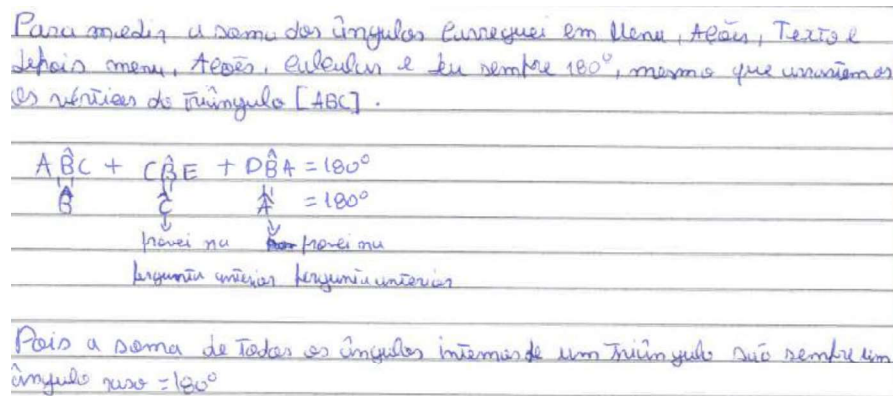 Para medir a soma dos ângulos Carreguei em Menu, Ações, Texto e
depois menu, Ações, Calcular e deu sempre 180°, mesmo que arrastemos
os vértices do triângulo [ABC].
AB̂C + CB̂E + DB̂A = 180°
B̂ Ĉ Â = 180°
provei na provei na
pergunta anterior pergunta anterior
Pois a soma de todos os ângulos internos de um triângulo são sempre um
ângulo raso = 180°